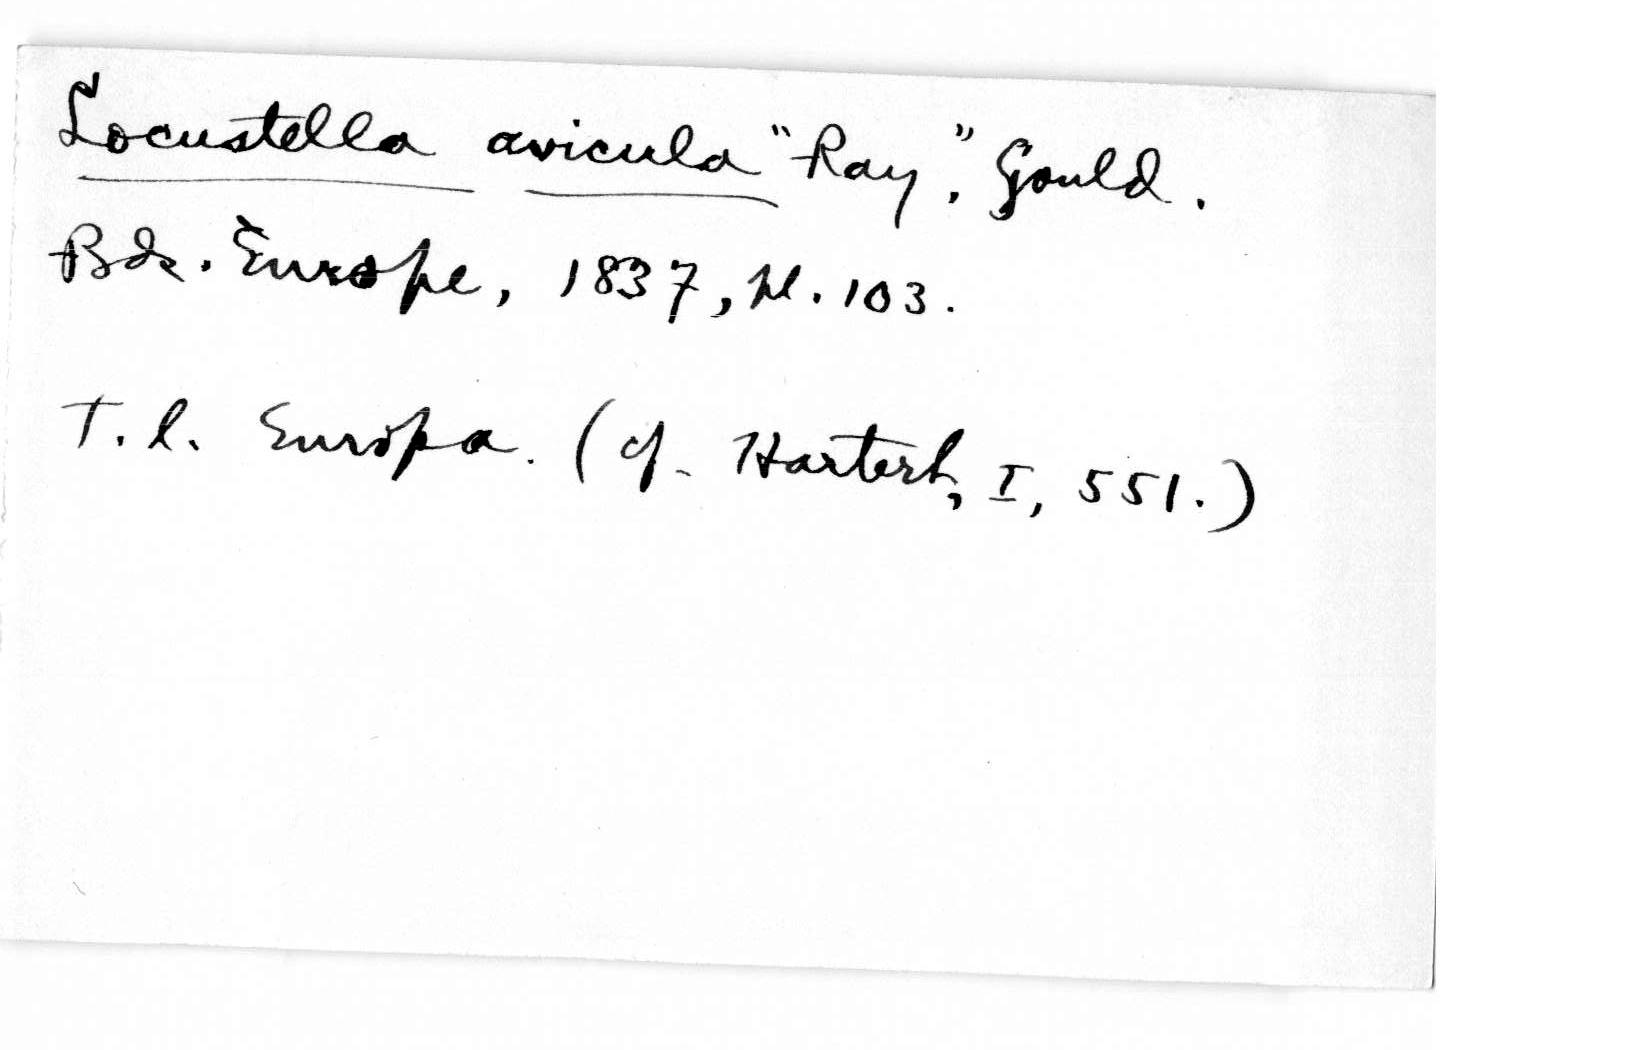 Locustella avicula "Ray", Gould.
Bds. Europe, 1837, pl. 103.
T. l. Europa. (cf. Hartert, I, 551.)